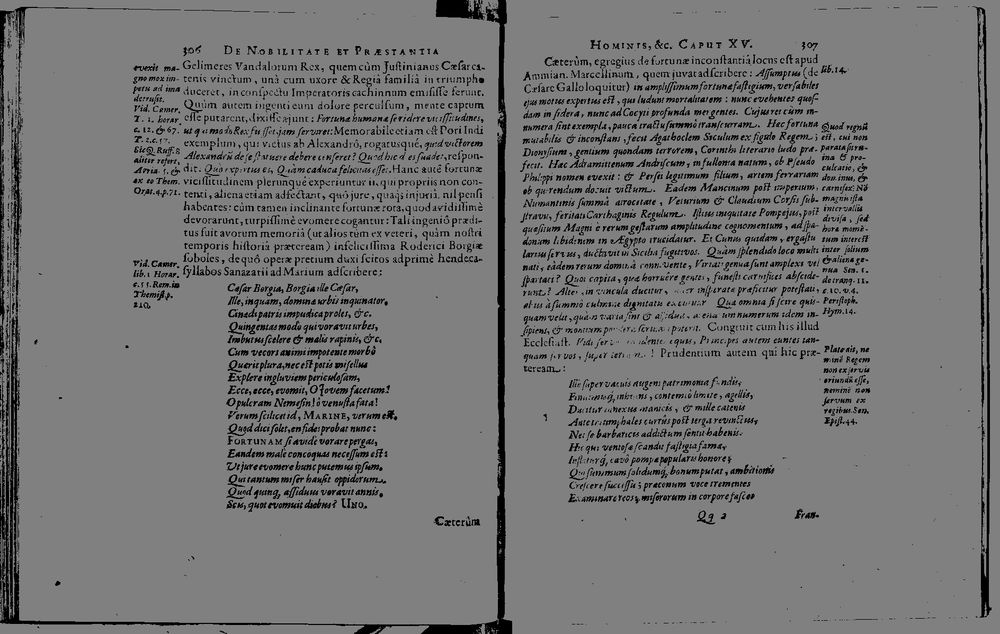 306 DE NOBILITATE ET PRÆSTANTIA
evexit magno mox impetu ad ima detrusit.
Vid. Camer. T. 1. horar. c. 12. & 67.
T. 2. c. 57.
aliter refert,
ex eo Them. Orat. 4. p. 71.
Vid. Camer. lib. 1 Horar. c. 55. Rem. in Themist. p. 210.
Gelimeres Vandalorum Rex, quem cùm Justinianus Cæsar ca-
tenis vinctum, unà cum uxore & Regiâ familiâ in triumpho
duceret, in conspectu Imperatoris cachinnum emisisse ferunt.
Quùm autem ingenti eum dolore perculsum, mente captum
esse putarent, dixisse ajunt: Fortunæ humanæ se ridere vicissitudines,
ut qui modo Rex fuisset, jam serviret: Memorabile etiam est Pori Indi
exemplum, qui victus ab Alexandrô, rogatusque, quid victorem
Alexandrū de se statuere debere censeret? Quod hic dies suadet, respon-
dit: Quo expertus es, Quàm caduca felicitas esset. Hanc autē fortunæ
vicissitudinem plerunque experiuntur ii, qui propriis non con-
tenti, aliena etiam adfectant, quô jure, quaq; injuriâ, nil pensi
habentes: cùm tandem inclinante fortunæ rotâ, quod avidissimè
devorarunt, turpissimè evomere cogantur: Tali ingeniô prædi-
tus fuit avorum memoriâ (ut alios tēm ex veteri, quàm nostri
temporis historiâ præteream) infelicissima Roderici Borgiæ
soboles, de quô operæ pretium duxi scitos adprimè hendeca-
syllabos Sanazarii ad Marium adscribere:
Cæsar Borgia, Borgia ille Cæsar,
Ille, inquam, dominæ urbis inquinator,
Cinædi patris impudica proles, &c.
Quingentas modo qui voravit urbes,
Imbutus scelere & malis rapinis, &c.
Cum vecors animi impotente morbô
Quærit plura, nec est potis misellus
Explere ingluviem periculosam,
Ecce, ecce, evomit, O Jovem facetum!
O pulcram Nemesin! ô venusta fata!
Verum scilicet id, MARINE, verum est,
Quod dici solet, en fides probat nunc:
FORTUNAM si avidè vorare pergas,
Eandem male concoquas necessum est:
Ut jure evomere hunc putemus ipsum.
Qui tantum miser hausit oppidorum.
Quod quinq; assiduus voravit annis,
Scis, quot evomuit diebus? UNO.
Cæterùm
HOMINIS, &c. CAPUT XV. 307
Cæterùm, egregius de fortunæ inconstantiâ locus est apud
Ammian. Marcellinum, quem juvat adscribere: Assumptus (de
Cæsare Gallo loquitur) in amplissimum fortunæ fastigium, versabiles
ejus motus expertus est, qui ludunt mortalitatem: nunc evehentes quos-
dam in sidera, nunc ad Cocyti profunda mergentes. Cujus rei cum in-
numera sint exempla, pauca tractu summô transcurram. Hæc fortuna
mutabilis & inconstans, fecit Agathoclem Siculum ex figulo Regem;
Dionysium, gentium quondam terrorem, Corinthi literario ludo præ-
fecit. Hæc Adramittenum Andriscum, in fullonia natum, ob Pseudo
Philippi nomen evexit: & Persei legitimum filium, artem ferrariam
ob quærendum docuit victum. Eadem Mancinum post imperium,
Numantinis summâ atrocitate, Veturium & Claudium Corsis sub-
stravit, feritati Carthaginis Regulum. Istius iniquitate Pompejus, post
quæsitum Magni ex rerum gestarum amplitudine cognomentum, ad spa-
donum libidinem in Ægypto trucidatur. Et Eunus quidam, ergastu-
larius servus, ductavit in Sicilia fugitivos. Quàm splendido loco multi
nati, eadem rerum dominâ connivente, Viriati genua sunt amplexi vel
Spartaci? Quot capita, quæ horruere gentes, funesti carnifices abscide-
runt? Alter in vincula ducitur, alter insperatæ præficitur potestati,
alius à summô culmine dignitatis excutitur. Quæ omnia si scire quis-
quam velit, quàm varia sint & assidua, arenarum numerum idem in-
sipiens, & montium pondera scrutari putabit. Congruit cum his illud
Ecclesiast. Vidi servos insidentes equis, Principes autem euntes tan-
quam servos, super terram! Prudentium autem qui hîc præ-
teream:
Ille supervacuis augens patrimonia fundis,
Finitimisq; inhians, contemto limite, agellis,
Ducitur innexus manicis, & mille catenis
Ante triumphales currus post terga revinctus,
Nec se barbaricis addictum sentit habenis.
Hic qui ventosæ scandit fastigia famæ,
Inflaturq; cavô pompæ popularis honore;
Qui summum solidumq; bonum putat, ambitionis
Crescere successu; præconum voce trementes
Examinare reos; miserorum in corpore fasces
lib. 14.
Quod regnū est, cui non parata sit ruina & proculcatio, & dominus, & carnifex: Nō magnis ista intervallis divisa, sed horæ momentum interest inter solium & aliena genua Sen. l. de tranq. 11.
c. 10. v. 4.
Peristeph. Hym. 14.
Plato ait, neminē Regem non ex servis oriundū esse, neminem non servum ex regibus. Sen. Epist. 44.
Qq 2 Fran-